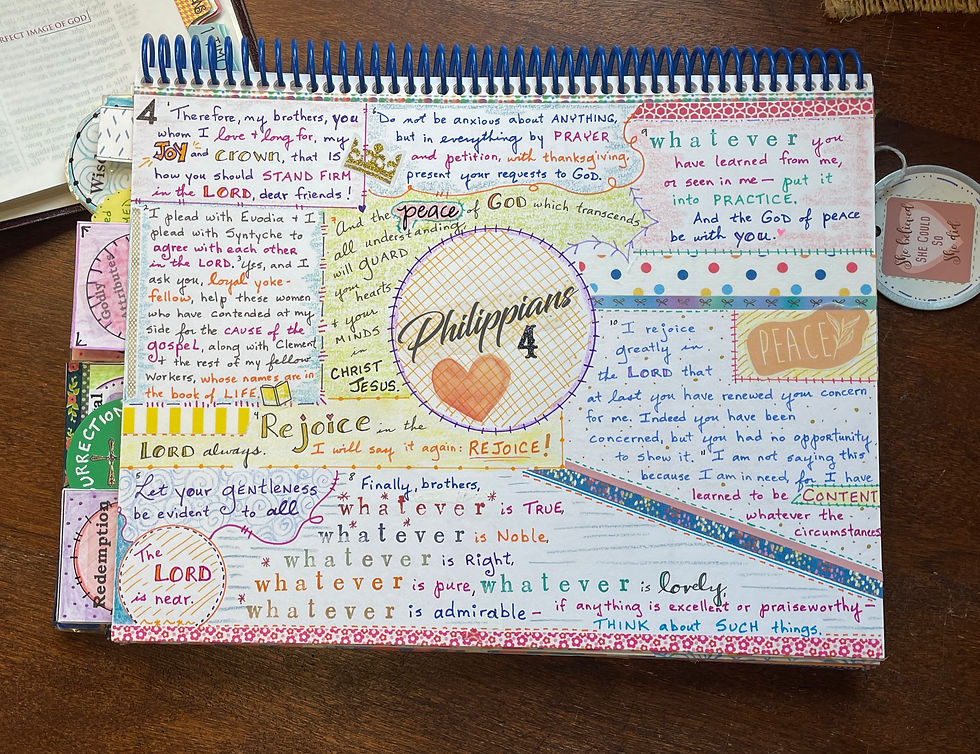 RFECT IMAGE OF GOD
1 TIM
4
Therefore, my brothers, you
whom I love + long for, my
JOY and crown, that is
how you should STAND FIRM
in the LORD, dear friends!
2 I plead with Evodia + I
plead with Syntyche to
agree with each other
in the LORD. 3 Yes, and I
ask you, loyal yoke-
fellow, help these women
who have contended at my
side for the CAUSE of the
gospel, along with Clement
+ the rest of my fellow
workers, whose names are in
the book of LIFE.
4 Rejoice in the
LORD always. I will say it again: REJOICE!
Let your gentleness
be evident to all
The
LORD
is near.
6 Do not be anxious about ANYTHING,
but in everything by PRAYER
and petition, with thanksgiving,
present your requests to GOD.
And the peace of GOD which transcends
all understanding,
will GUARD
your
hearts
+ your
MINDS
in
CHRIST
JESUS.
Philippians
4
8 Finally, brothers,
whatever is TRUE,
whatever is Noble,
whatever is Right,
whatever is pure, whatever is lovely,
whatever is admirable – if anything is excellent or praiseworthy –
THINK about SUCH things.
9 whatever you
have learned from me,
or seen in me – put it
into PRACTICE.
And the GOD of peace
be with you.
PEACE
10 I rejoice
greatly in
the LORD that
at last you have renewed your concern
for me. Indeed you have been
concerned, but you had no opportunity
to show it. 11 I am not saying this
because I am in need, for I have
learned to be CONTENT
whatever the
circumstances
She believed
SHE COULD
SO
She did
Wis
"Godly
Attributes"
al
URRECTION
Redemption